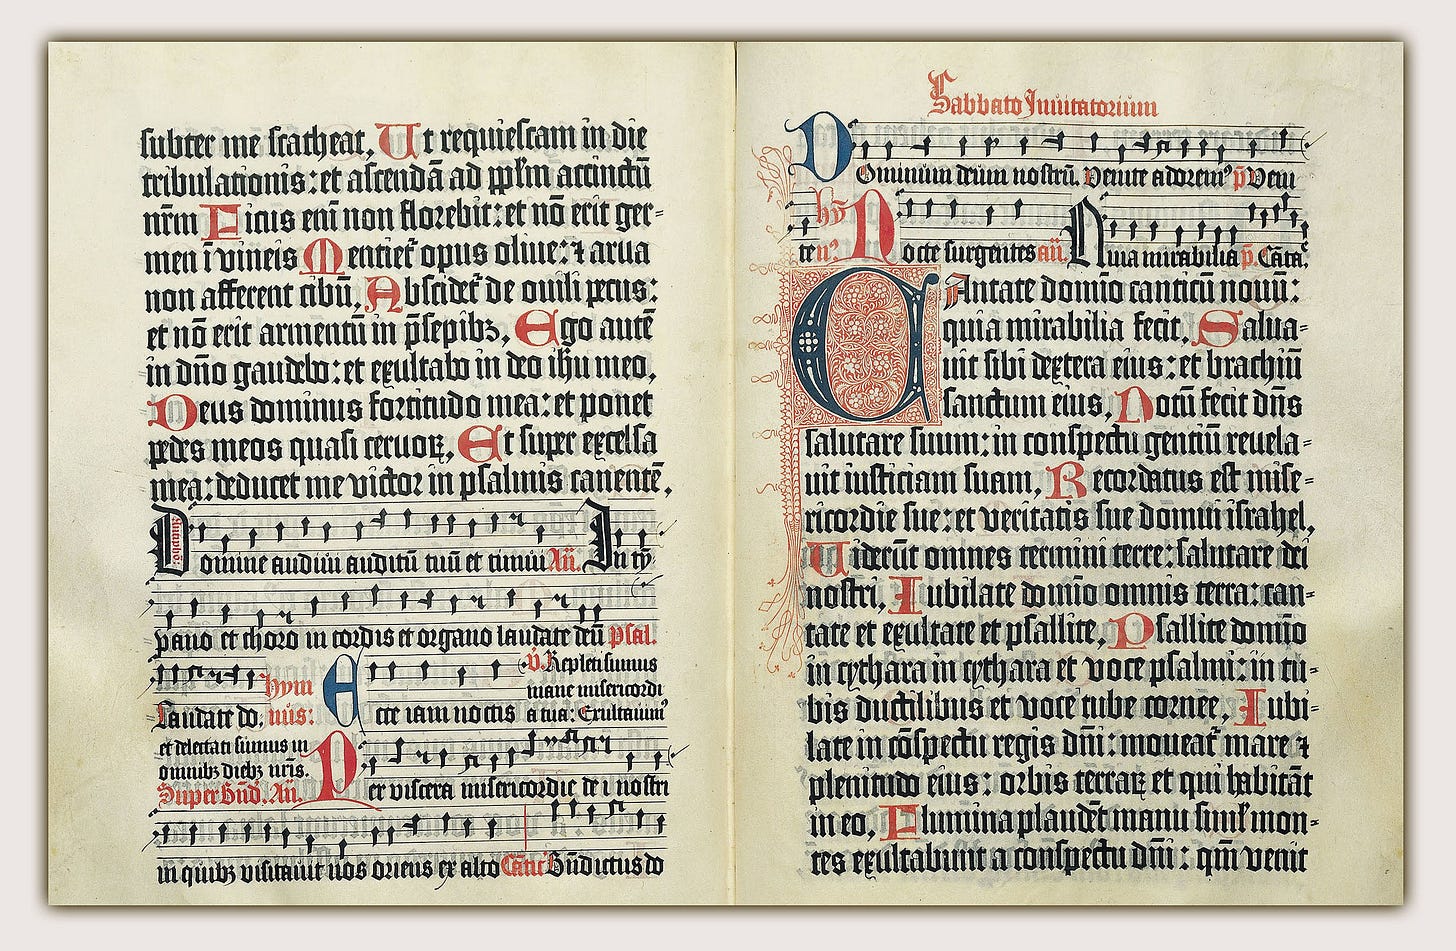 subter me scatheat. Ut requiescam in die
tribulationis: et ascendā ad pplm accinctū
nr̄m Ficus eni non florebit: et nō erit ger-
men ī vineis Mentiet opus olive: ⁊ arua
non afferent cibū. Abscidet de ouili pecus:
et nō erit armentū in p̄sepibꝫ. Ego autē
in dn̄o gaudebo: et exultabo in deo ihu meo.
Deus dominus fortitudo mea: et ponet
pedes meos quasi ceruoꝝ. Et super excelsa
mea: deducet me victor in psalmis canentē.
Domine audiui auditū tuū et timui Añ. In ty
pano et choro in cordis et organo laudate deū psal.
v. Repleti sumus
mane misericordi
Laudate do. hymnus: Ecce iam noctis a tua: Exultauim⁹
et delectati sumus in
omnibꝫ diebꝫ nr̄is.
Super Bn̄d. Añ. Per viscera misericordie dei nostri
in quibꝫ visitauit nos oriens ex alto Cātic Bn̄dictus do
Sabbato Inuitatorium
Dominum deum nostrū. Venite adorem⁹ p̄ Veni
te hỹn⁹. Nocte surgentes añ. Quia mirabilia p̄. Cāta
CAntate domino canticū nouū:
quia mirabilia fecit. Salua-
uit sibi dextera eius: et brachiū
sanctum eius. Notū fecit dn̄s
salutare suum: in conspectu gentiū reuela-
uit iusticiam suam. Recordatus est mise-
ricordie sue: et veritatis sue domui israhel.
Viderūt omnes termini terre: salutare dei
nostri. Iubilate domino omnis terra: can-
tate et exultate et psallite. Psallite domino
in cythara in cythara et voce psalmi: in tu-
bis ductilibus et voce tube cornee. Iubi-
late in cōspectu regis dn̄i: moueat mare ⁊
plenitudo eius: orbis terraꝝ et qui habitāt
in eo. Flumina plaudēt manu simul mon-
tes exultabunt a conspectu dn̄i: qm̄ venit